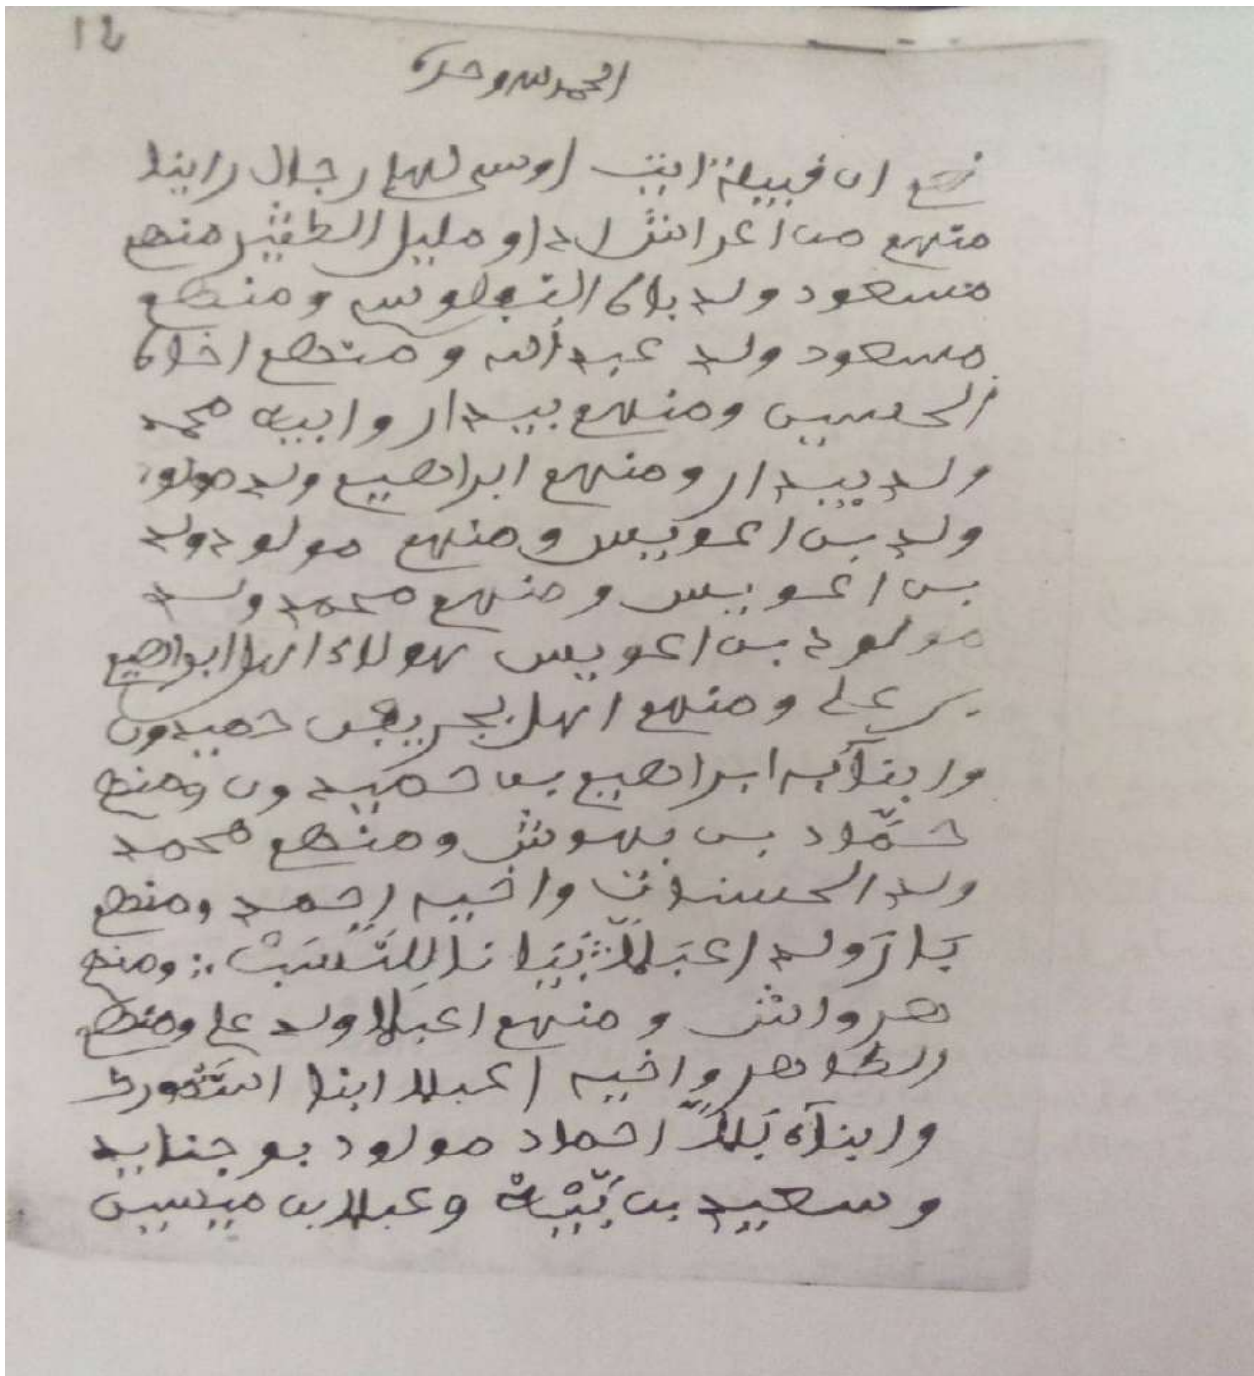 12
الحمد لله وحده
نعم ان قبيلة ايت اوسى لها رجال راينا
منهم من اعرانش ل داو مليل الطفير منهم
مسعود ولد باه التبلوس ومنهم
مسعود ولد عبد الله ومنهم اخاه
الحسين ومنهم بيدار وابيه محمد
ولد بيدار ومنهم ابراهيم ولد مولو
ولد بن اعويس ومنهم مولود ولد
بن اعويس ومنهم محمد ولد
مولود بن اعويس هولاء اهل ابراهيم
بن علي ومنهم اهل حميدون
وابناءه ابراهيم بن حميدون ومنهم
حمّاد بن بهوش ومنهم محمد
ولد الحسنات واخيه احمد ومنهم
ولد اعبلا ومنهم
هروانش ومنهم اعبلا ولد علي ومنهم
الطاهر واخيه اعبلا ابنا
وابناءه احماد مولود بوجناب
وسعيد بن وعبلا بن ميسين